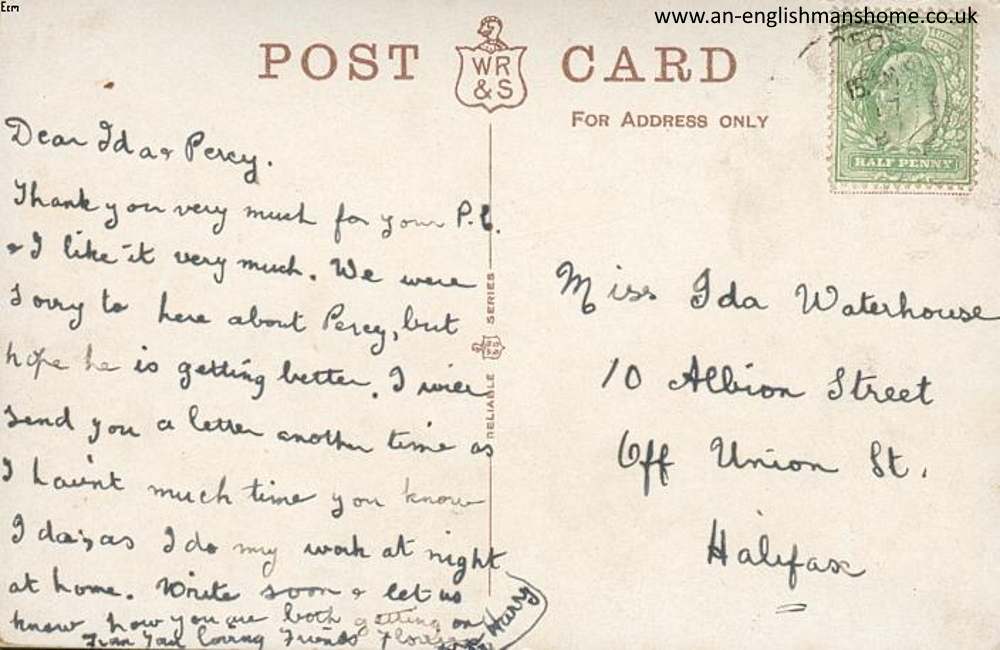 Ecm
www.an-englishmanshome.co.uk
POST CARD
WR
& S
FOR ADDRESS ONLY
HALF PENNY
Dear Ida & Percy.
Thank you very much for your P.C.
& I like it very much. We were
sorry to here about Percy, but
hope he is getting better. I will
send you a letter another time as
I haint much time you know
I day, as I do my work at night
at home. Write soon & let us
know how you are both getting on
From Your loving Friends
Harry
RELIABLE SERIES
Miss Ida Waterhouse
10 Albion Street
Off Union St.
Halifax